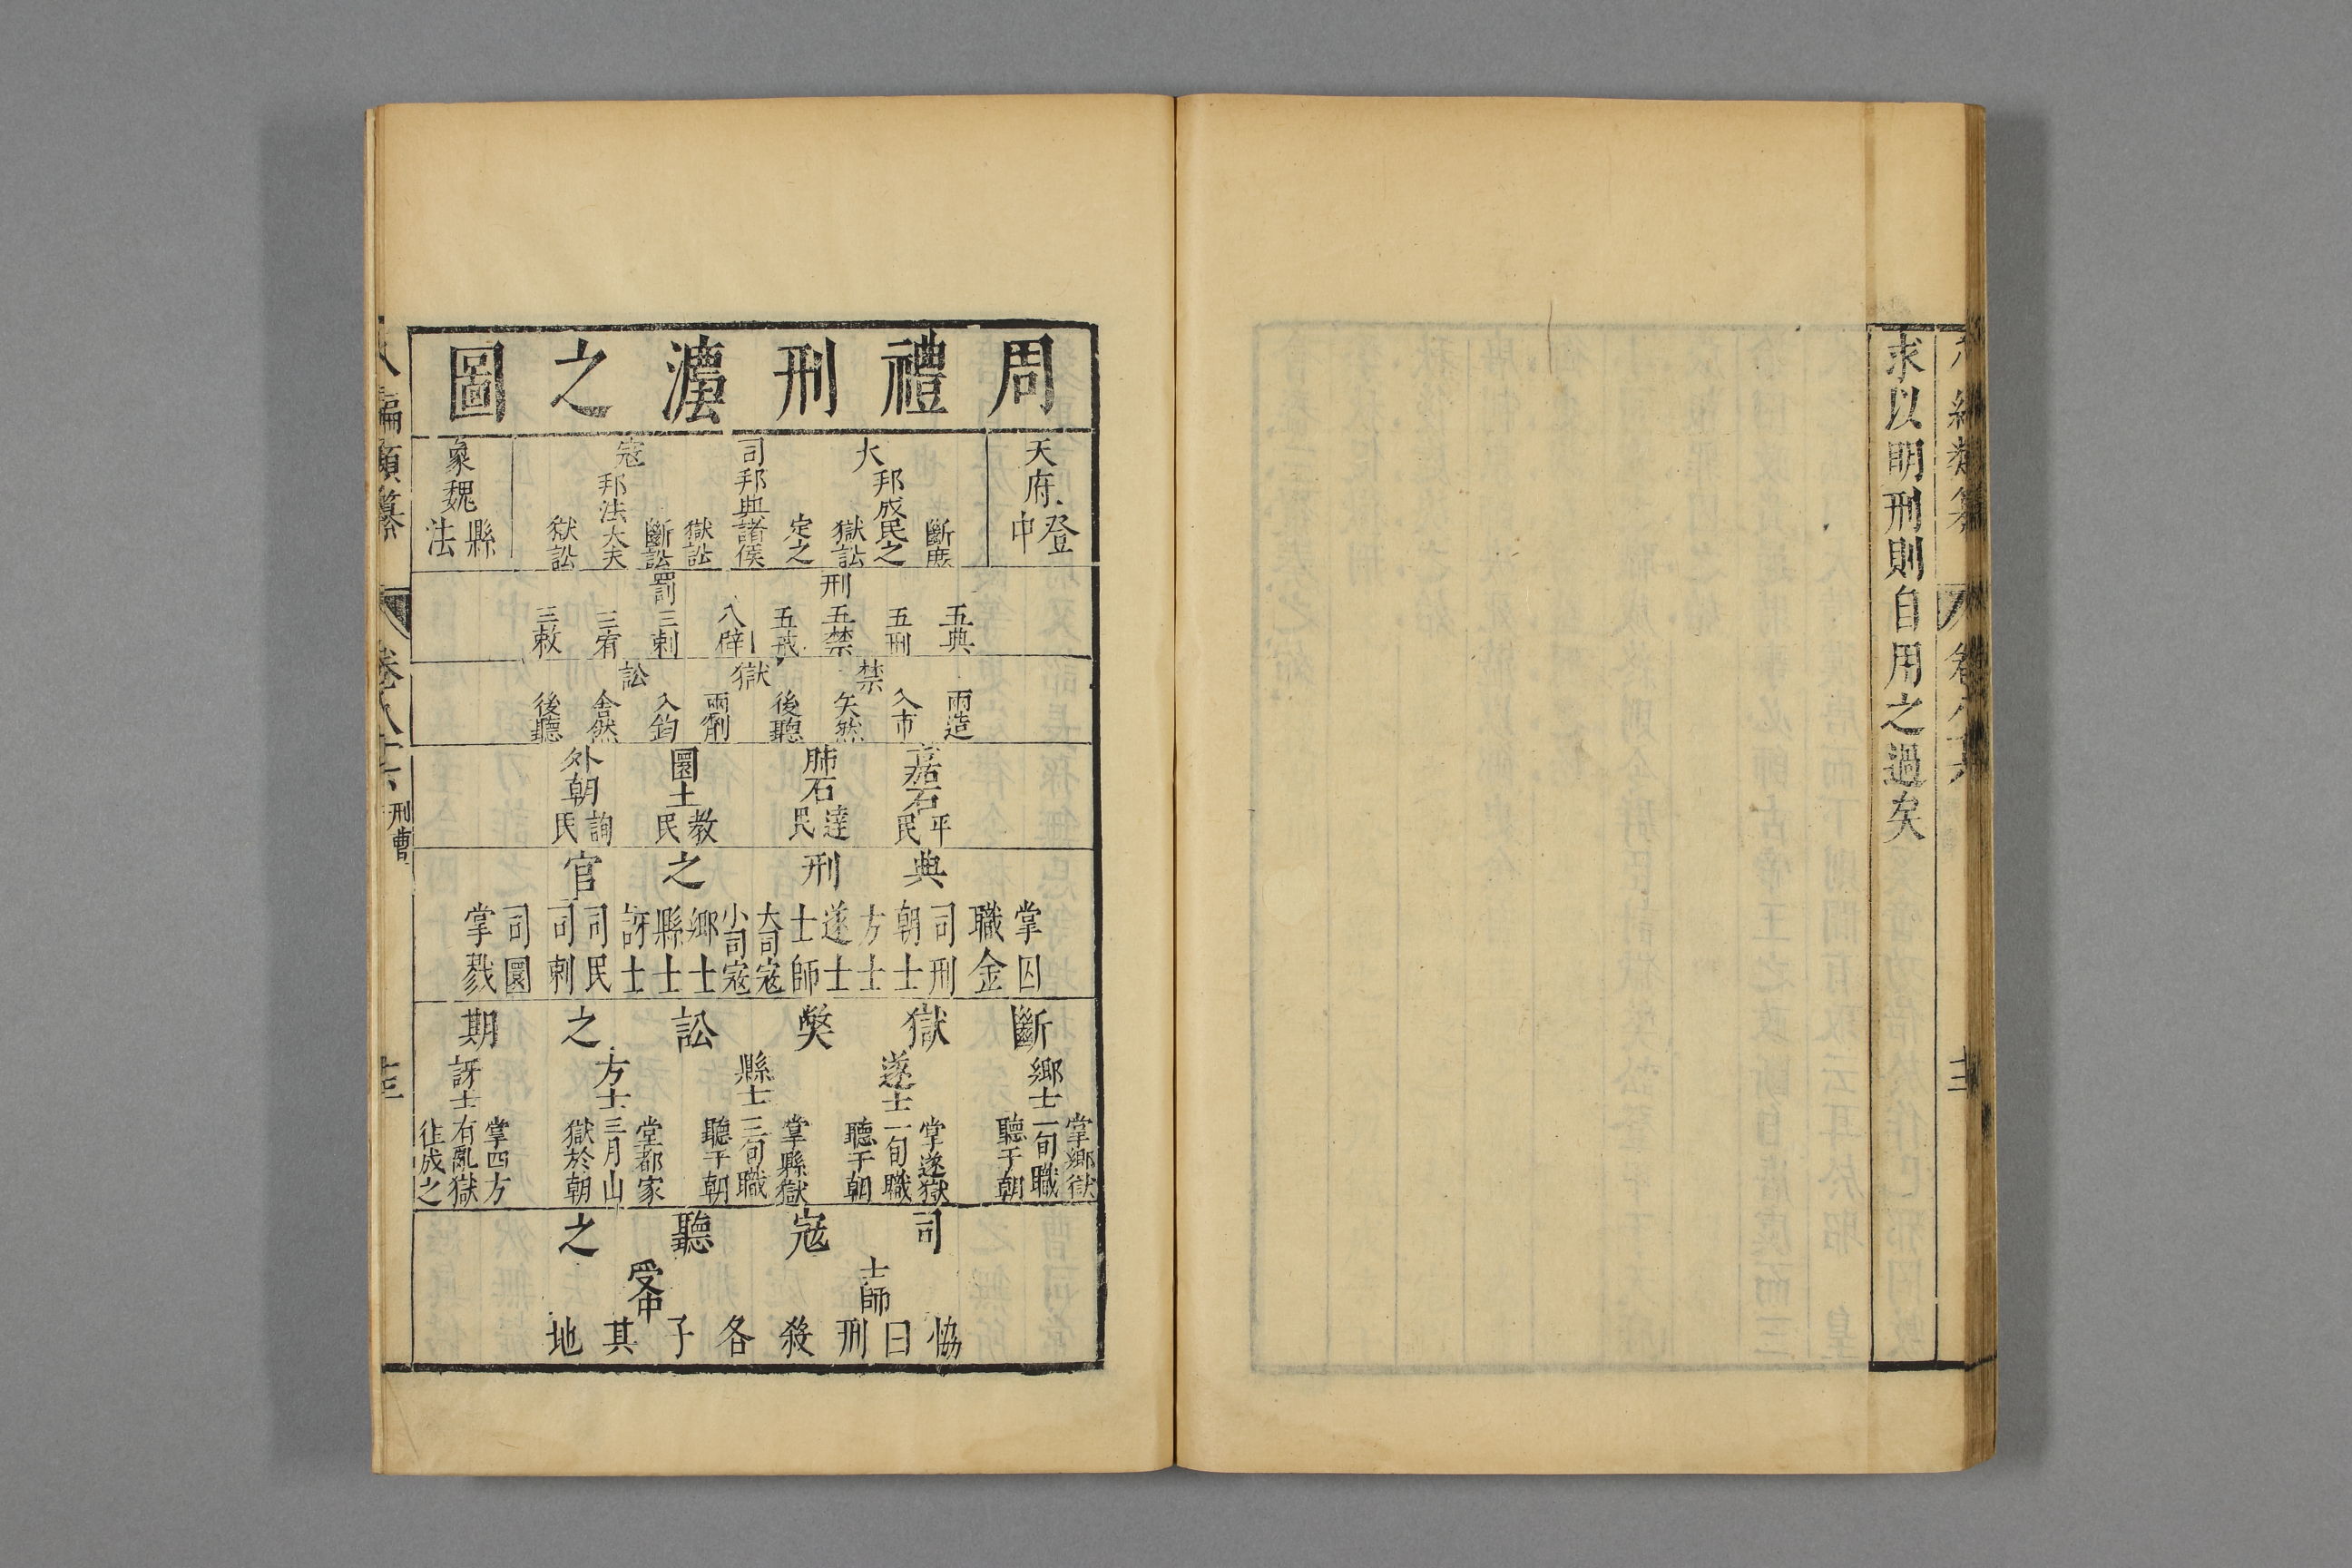 求以明刑則自用之過矣
周禮刑灋之圖
天府
登中
大司寇
邦成民之
斷庶
獄訟
定之
邦典諸侯
獄訟
斷訟
邦法大夫
獄訟
象魏
縣法
刑罰
五典
五刑
五禁
五戒
八辟
三刺
三宥
三赦
禁獄訟
兩造
入市
矢然
後聽
兩劑
入鈞
舍然
後聽
嘉石
平民
肺石
達民
圜土
教民
外朝
詢民
典刑之官
掌囚
職金
司刑
朝士
方士
遂士
士師
大司寇
小司寇
鄉士
縣士
訝士
司民
司刺
司圜
掌戮
斷獄獘訟之期
鄉士
掌鄉獄
一旬職
聽于朝
遂士
掌遂獄
二旬職
聽于朝
縣士
掌縣獄
三旬職
聽于朝
方士
掌都家
三月山
獄於朝
訝士
掌四方
有亂獄
往成之
司寇聽之
士師
受中
恊日刑殺各于其地
八編類纂
卷八十六
刑曹
十三